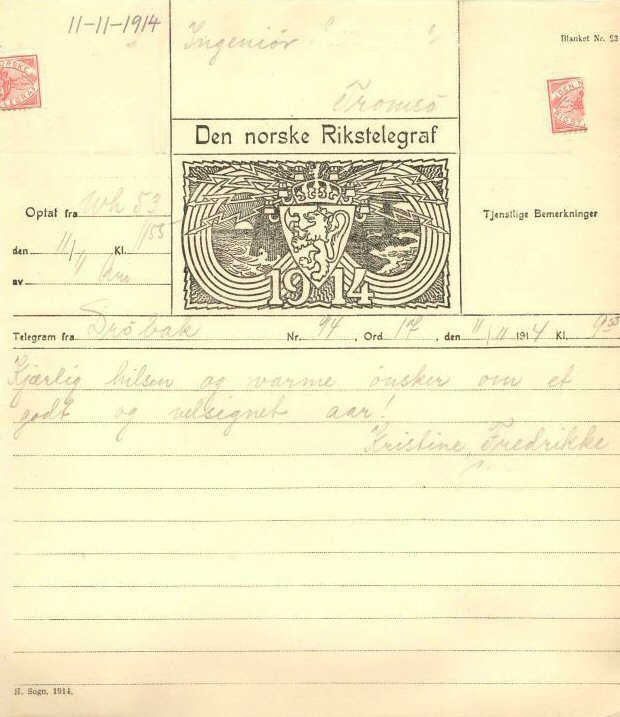 11-11-1914
Ingeniör
Blanket Nr. 23
Tromsö
Den norske Rikstelegraf
Optat fra 53
Tjenstlige Bemerkninger
den 11/11 Kl. 1155
av
1914
Telegram fra Dröbak Nr. 94, Ord 17, den 11/11 1914 Kl. 9 55
Kjærlig hilsen og varme önsker om et
godt og velsignet aar!
Kristine, Fredrikke
H. Sogn. 1914.